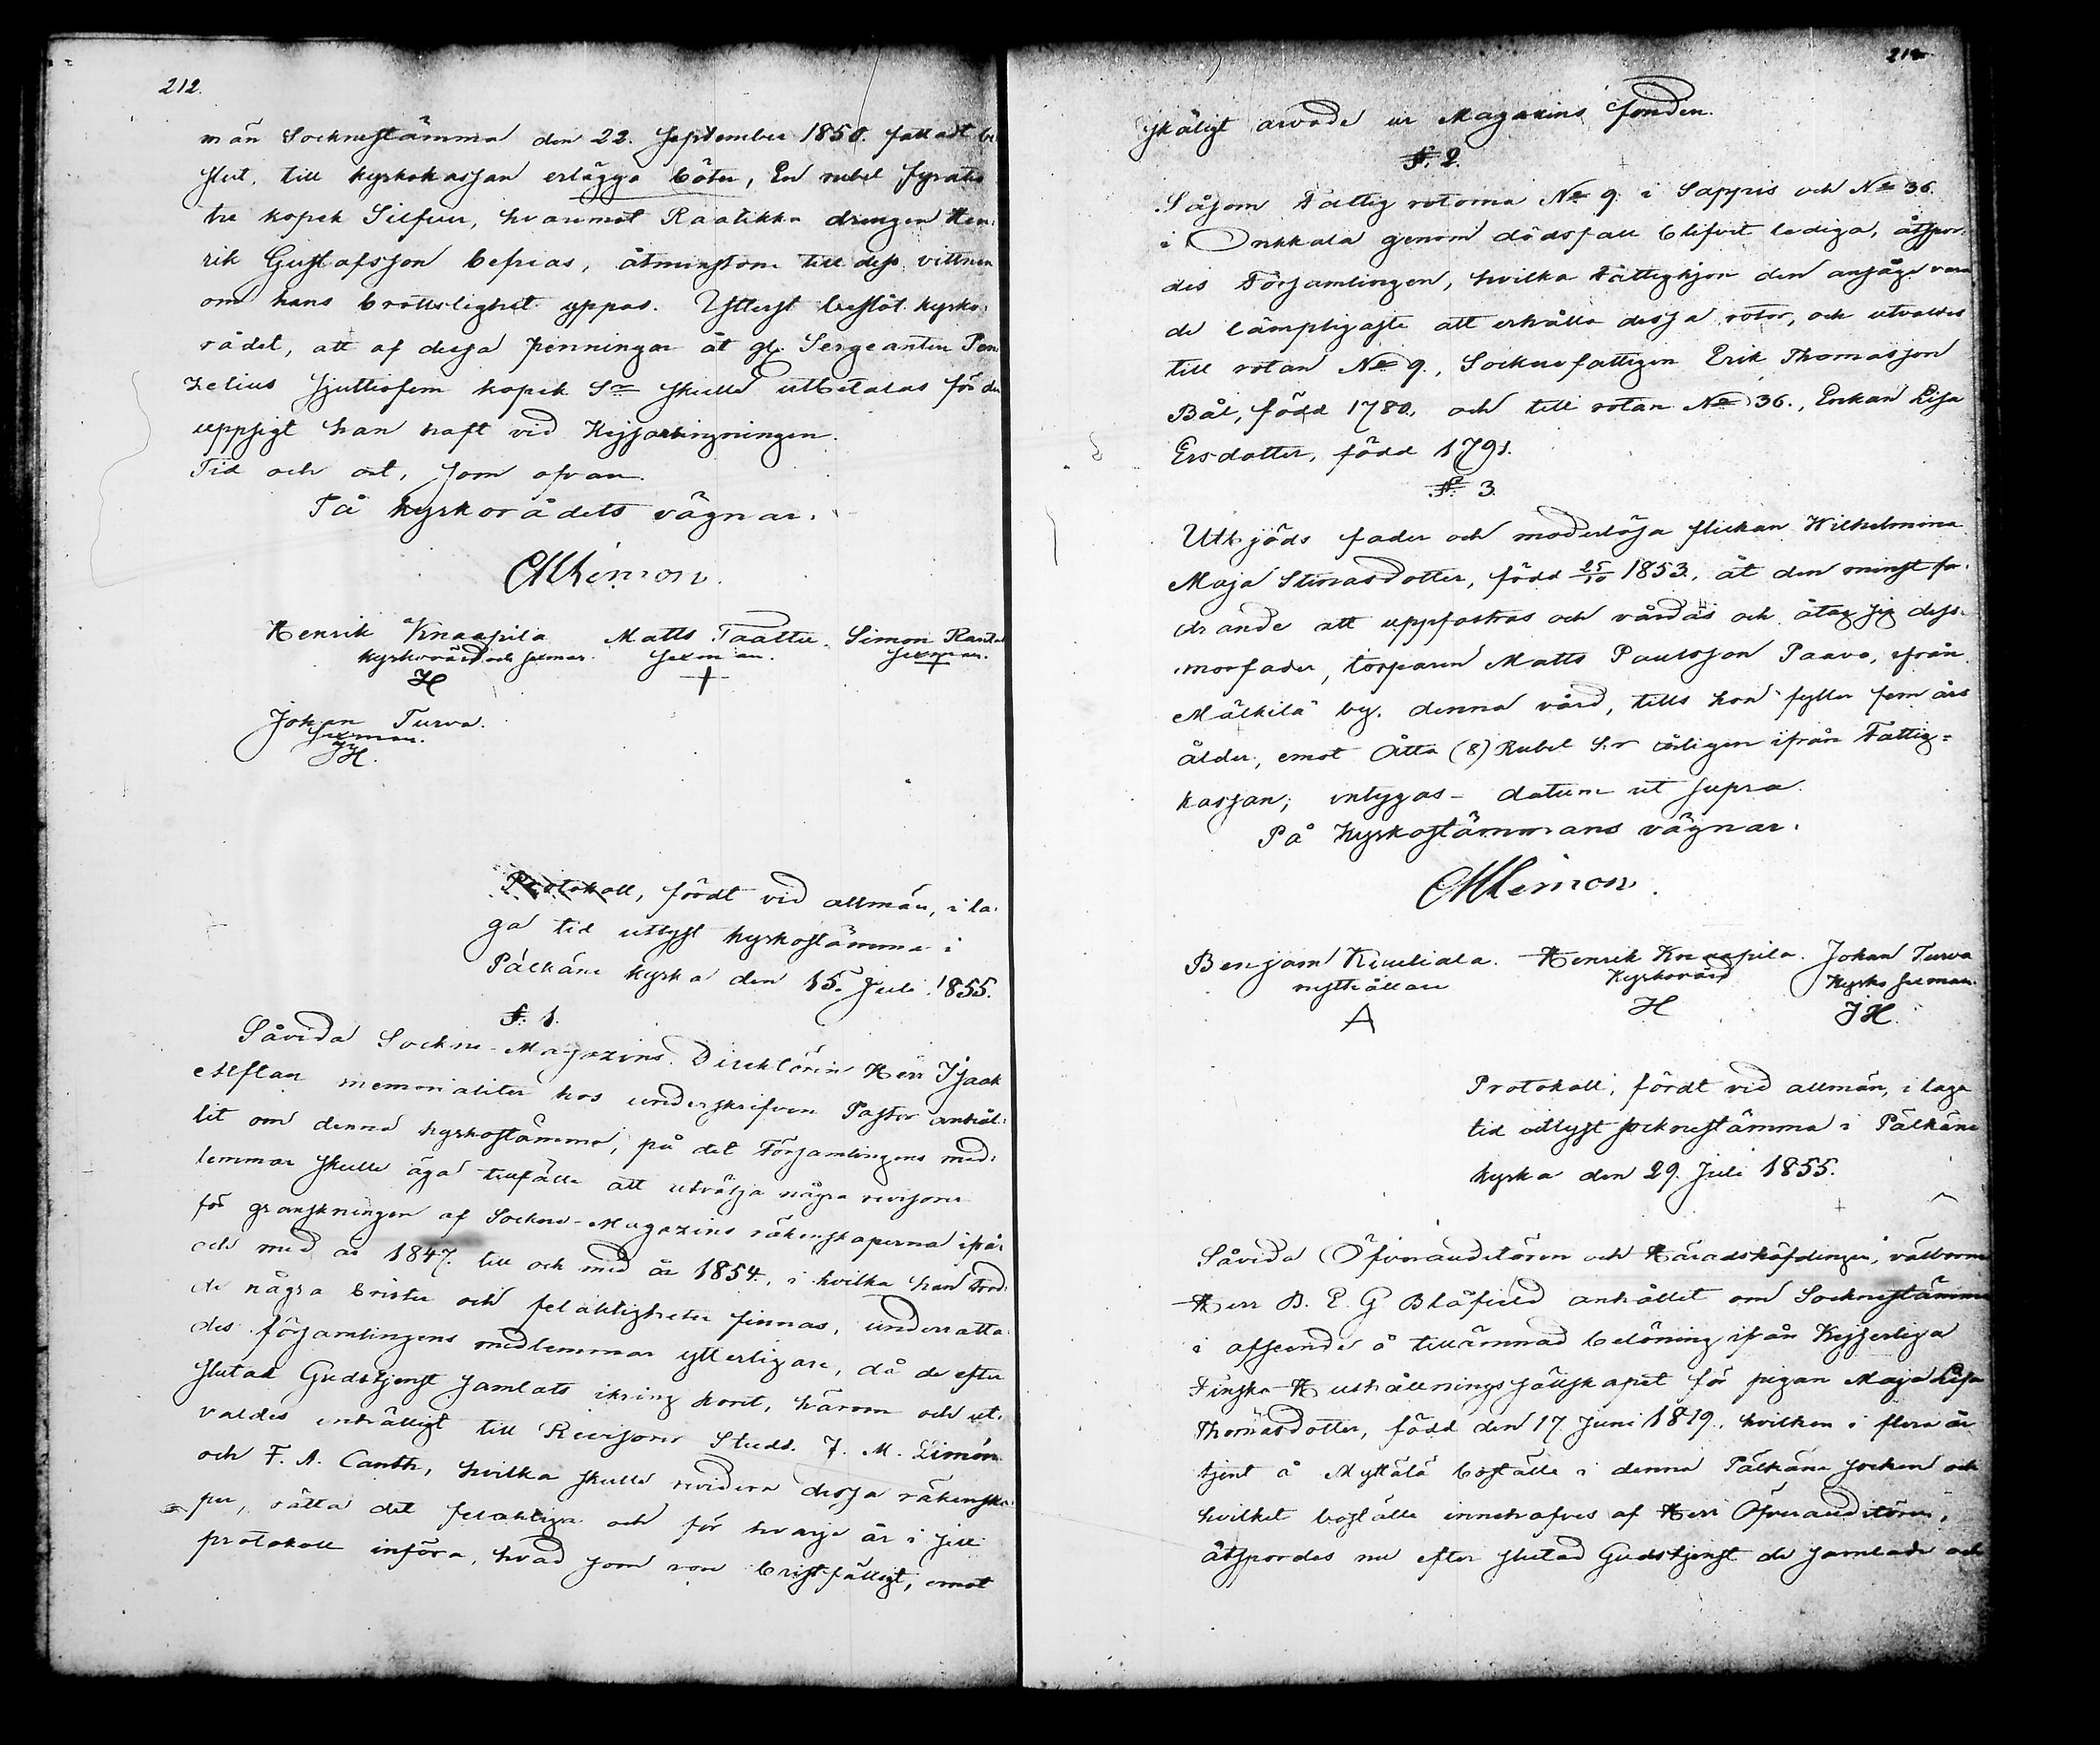 212.
män Socknestämma den 22. September 1850. fattadt be-
slut, till kyrkokassan erlägga böter, En rubel fyratio
tre kopek Silfver, hvaremot Raatikka drengen Hen-
rik Gustafsson befrias, åtminstone till dess vittnen
om hans brottslighet uppas. Ytterst beslöt kyrko-
rådet, att af dessa penningar åt gl. Sergeanten Pon
zelius sjuttiofem kopek S:r skulle utbetalas för den
uppsigt han haft vid Kejsaringningen.
Tid och ort, som ofvan.
På kyrkorådets vägnar.
Henrik Knaapila Matts Taattu. Simon Rantal
kyrkovärd och sexman. sexman. sexman.
H +
Johan Turva.
sexman.
JH.
Protokoll, fördt vid allmän, i la-
ga tid utlyst kyrkostämma i
Pälkäne kyrka den 15. Juli 1855.
§. 1.
Såvida Sockne-Magazins Direktören Herr Isaak
Alftan memorialiter hos underskrifven Pastor anhål-
lit om denna kyrkostämma, på det Församlingens med-
lemmar skulle äga tillfälle att utvälja några revisorer
för granskningen af Sockne-Magazins räkenskaperna ifrån
och med år 1847. till och med år 1854, i hvilka han trod-
de några brister och felaktigheter finnas, underrätta-
des församlingens medlemmar ytterligare, då de efter
slutad Gudstjenst samlats ikring koret, härom och ut-
valdes enhälligt till Revisorer Studs. F. M. Limón
och F. A. Canth, hvilka skulle revidera dessa räkenska-
per, rätta det felaktiga och för hvarje år i sitt
protokoll införa, hvad som vore bristfälligt, emot
skäligt arvode ur Magazins fonden.
§. 2.
Såsom Fattig rotorna No 9 i Sappis och No 36.
i Onkkala genom dödsfall blifvit lediga, åtspor-
des Församlingen, hvilka Fattighjon den ansåge vara
de lämpligaste att erhålla dessa rotor, och utvaldes
till rotan No 9., Socknefattigen Erik Thomasson
Bål, född 1780, och till rotan No 36., Enkan Lisa
Ersdotter, född 1791.
§. 3.
Utbjöds fader och moderlösa flickan Wilhelmina
Maja Stinasdotter, född 25/10 1853, åt den minst for-
drande att uppfostras och vårdas och åtog sig dess
morfader, torparen Matts Paulsson Paavo, ifrån
Mälkilä by. denna vård, tills hon fyller fem års
ålder, emot Åtta (8) Rubel S:r årligen ifrån Fattig-
kassan; intygas - datum ut supra.
På Kyrkostämmans vägnar.
Benjam Kiuliala. Henrik Knaapila. Johan Turva
nytthållare Kyrkovärd Kyrko sexman.
A H JH.
Protokoll, fördt vid allmän, i laga
tid utlyst sockenstämma i Pälkäne
kyrka den 29. Juli 1855.
Såvida Öfverauditören och Häradshöfdingen, välborne
Herr B. E. G Blåfield anhållit om Socknestämma
i afseende å tillämnad belöning ifrån Kejserliga
Finska Hushållningssällskapet för pigan Maja Lisa
Thomasdotter, född den 17 Juni 1819, hvilken i flera år
tjent å Myttälä boställe i denna Pälkäne socken och
hvilket boställe innehafves af Herr Öfverauditören,
åtspordes nu efter slutad Gudstjenst de samlade och